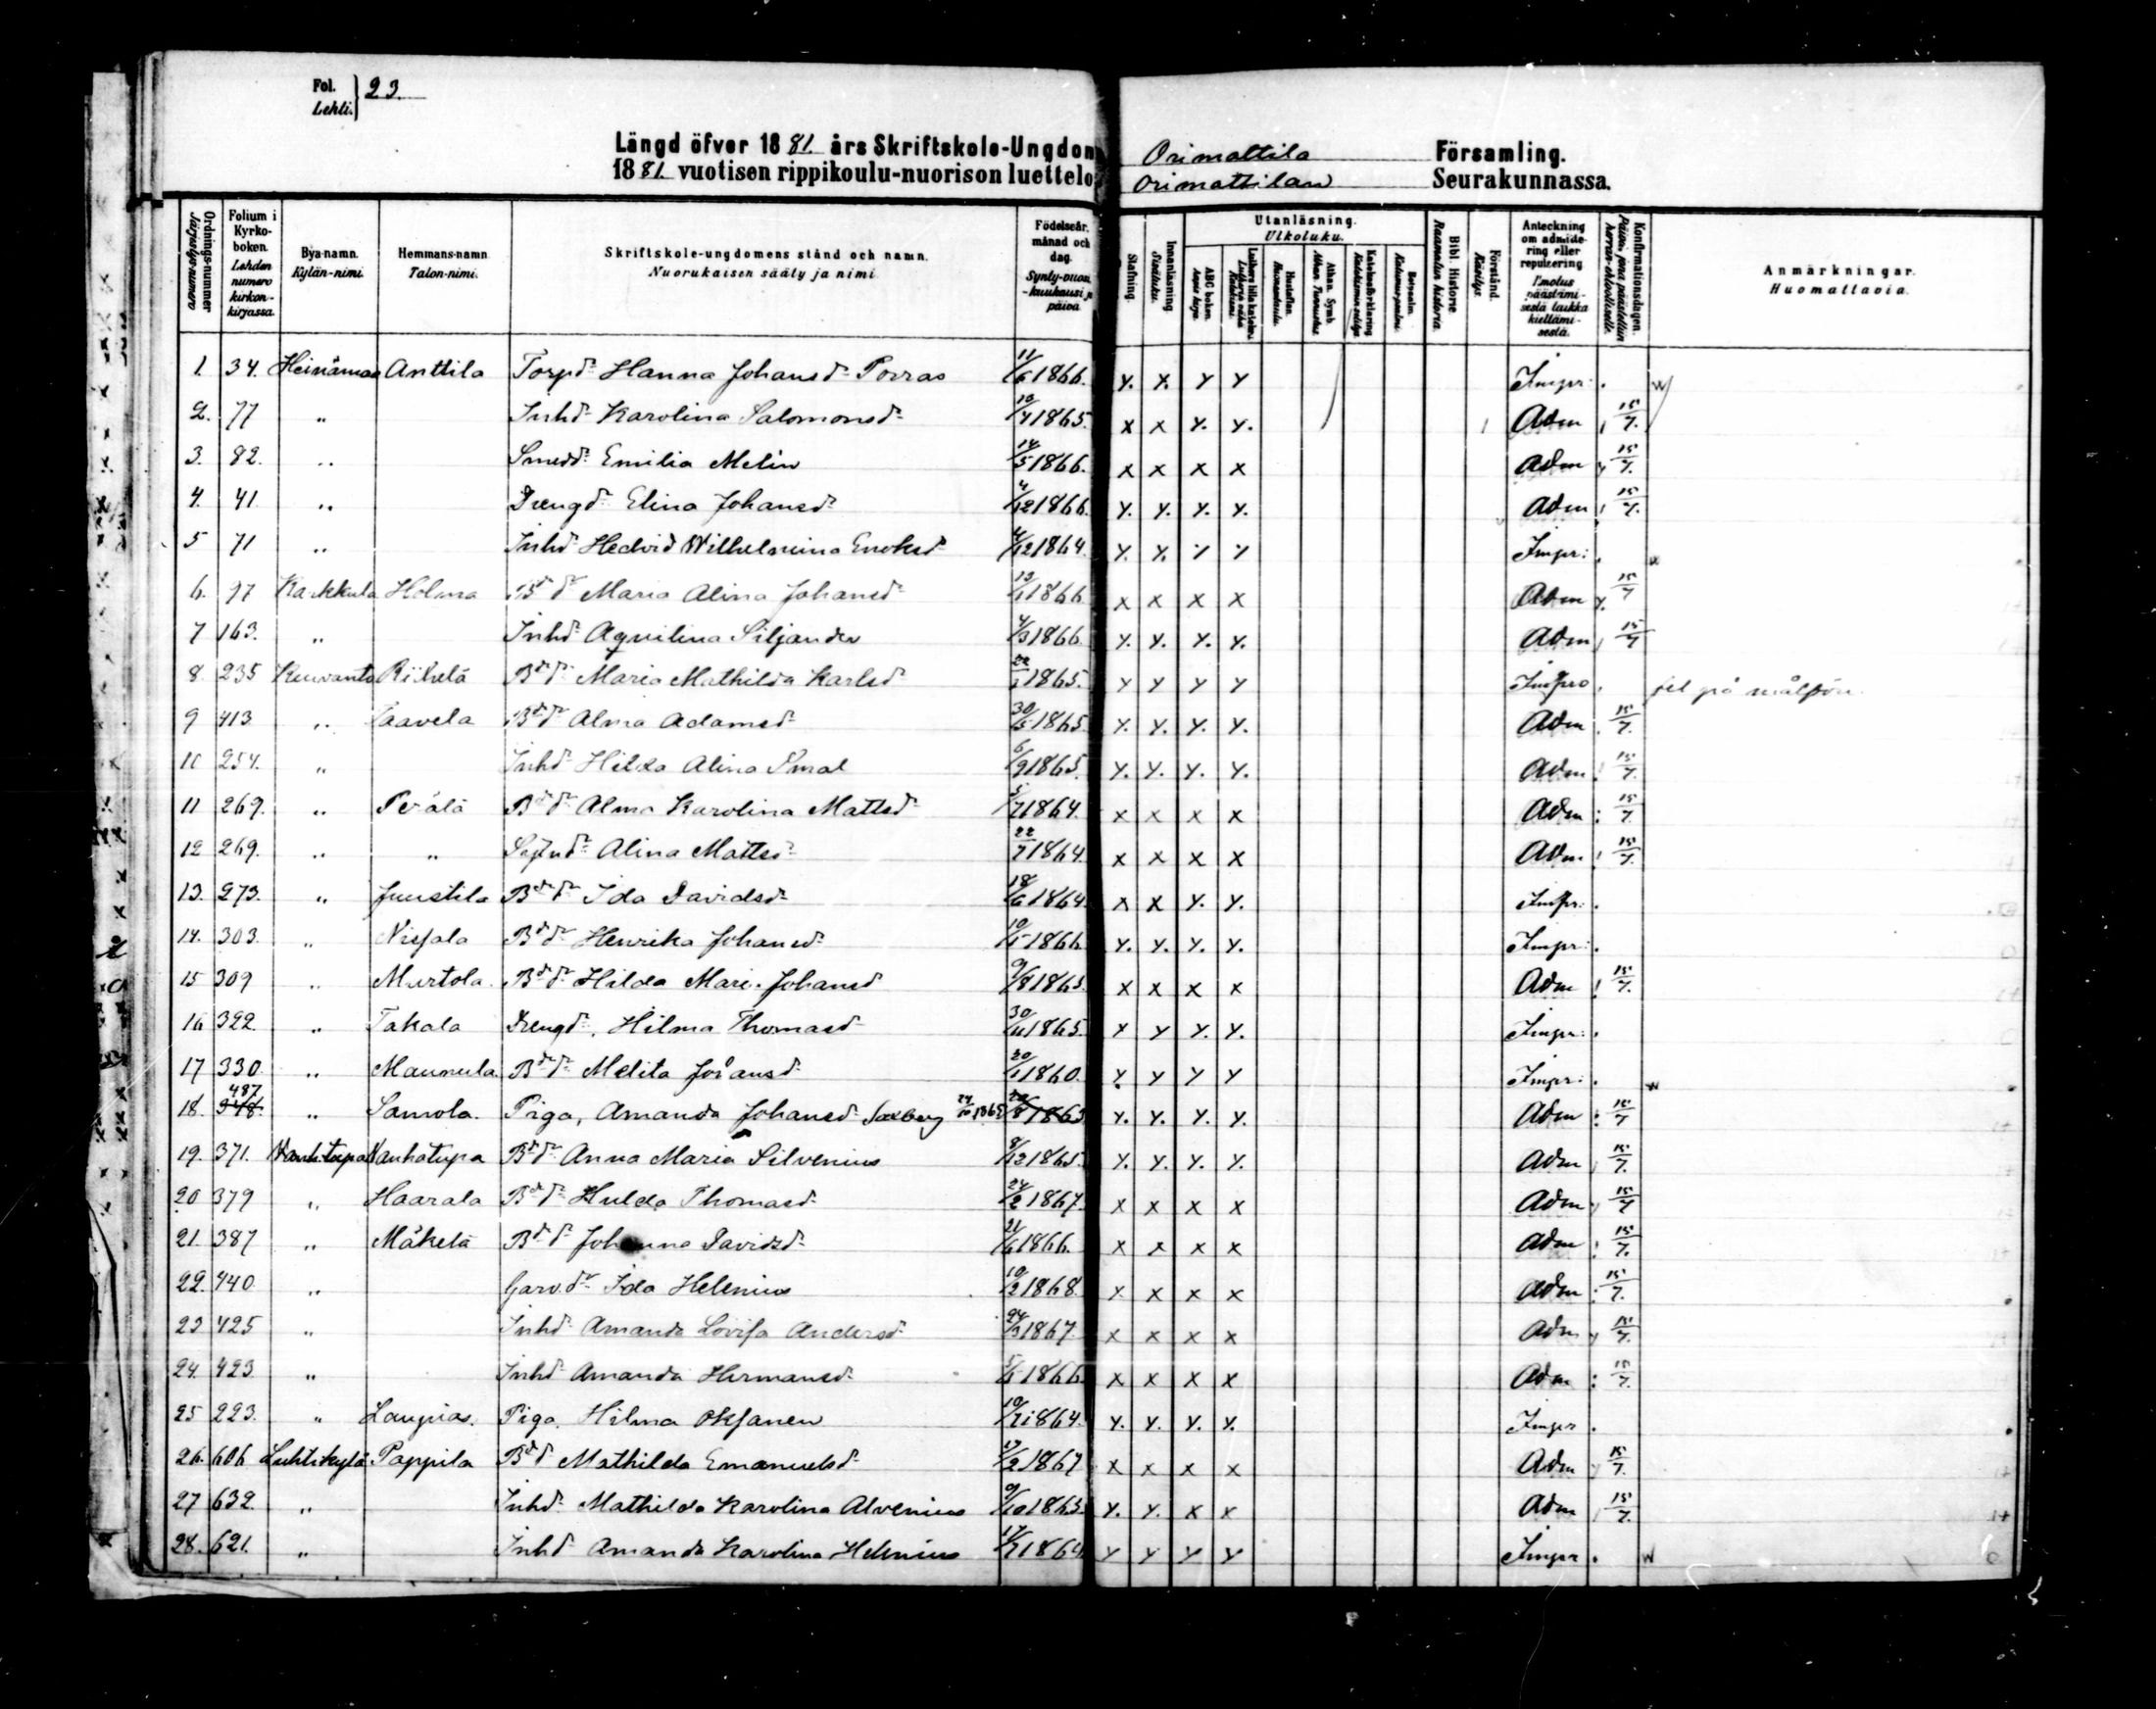 Fol. Lehti. } 23.
Längd öfver 1881. års Skriftskole-Ungdom Orimattila Församling.
1881. vuotisen rippikoulu-nuorison luettelo Orimattilan Seurakunnassa.
Ordnings-nummer Järjestys-numero
Folium i Kyrko-boken. Lehden numero kirkon-kirjassa.
Bya-namn. Kylän-nimi.
Hemmans-namn. Talon-nimi.
Skriftskole-ungdomens stånd och namn. Nuorukaisen sääty ja nimi.
Födelseår, månad och dag. Synty-vuosi -kuukausi ja päivä
Stafning.
Innanläsning. Sisäluku.
Utanläsning. Ulkoluku.
ABC boken. Aapis kirja.
Luthers lilla kateches.
Hustaflan. Huoneentaulu.
Athan. Symb. Athan Tunnustus.
Katekesförklaring
Botpsalm. Katumus-psalmi.
Bibl. Historie. Raamatun historia.
Förstånd. Käsitys.
Anteckning om admitte-ring eller repulsering
Konfirmationsdagen.
Anmärkningar. Huomattavia.
1. 34. Heinämaa Anttila Torpd:r Hanna Johansd:r Porras 11/6 1866. x. x. x x Impr:. w
2. 77 " Inhd:r Karolina Salomonsd:r 1865. x x x. x. Adm 15/7.
3. 82. " Smedd:r Emilia Melin 14/5 1866. x x x x Adm 15/7.
4. 41. " Drengd:r Elina Johansd:r 4/12 1866. x. x. x. x. Adm 15/7.
5 71 " Inhd:r Hedvid Wilhelmina Enoksd 4/12 1864. x. x. x x Impr:.
6. 97 Karkkula Holma Bd:r d:r Maria Alina Johansd:r 13/1 1866 x x x x Adm 15/7
7 163. " Inhd:r Aqvilina Siljander 4/3 1866 x. x. x. x. Adm 15/7
8. 235 Keuvanto Riihelä Bd:r d:r Maria Mathilda Karlsd:r 22/1 1865. x x x x Impro. fel på målför.
9 413 " Taavela Bd:r d:r Alma Adamsd:r 30/5 1865 x. x. x. x. Adm 15/7.
10 254. " Inhd:r Hilda Alina Smal 6/9 1865. x. x. x. x. Adm 15/7.
11 269. " Perälä Bd:r d:r Alma Karolina Mattsd:r 5/7 1864. x x x x Adm 15/7
12 269. " " Alina Mattsd:r 22/7 1864 x x x x Adm 15/7.
13. 273. " Juustila Bd:r d:r Ida Davidsd:r 18/6 1864. x x x. x. Impr:.
14. 303. " Bd:r d:r Henrika Johansd:r 10/5 1866. x. x. x. x. Impr:.
15 309 " Murtola. Bd:r d:r Hilda Mari. Johansd 9/8 1865. x x x x Adm 15/7.
16 322. " Takala Drengd:r, Hilma Thomasd:r 30/11 1865. x x x. x. Impr:.
17 330. " Maunula. Bd:r d:r Melita Johansd:r 20/1 1860. x x x x Impr:. w
18. 487 348. " Samola. Piga, Amanda Johansd:r Saxberg 1865 1863 x. x. x. x. Adm 15/7
19. 371. Vanhatupa Vanhatupa Bd:r d:r Anna Maria Silvenius 8/12 1865. x. x. x. x. Adm 15/7.
20 379 " Haarala Bd:r d:r Hulda Thomasd:r 24/2 1867. x x x x Adm 15/7
21. 387 " Mäkelä Bd:r d:r Johanna Davidsd:r 21/6 1866. x x x x Adm 15/7.
22. 440 " Garv.d:r Ida Helenius 10/2 1868. x x x x Adm 15/7.
23 425 " Inhd:r Amanda Lovisa Andersd:r 24/3 1867. x x x x Adm 15/7.
24. 423. " Inhd:r Amanda Hermansd:r 5/1 1866. x x x x Adm 15/7.
25 223. " Laupias. Piga. Hilma Oksanen 10/7 1864. x. x. x. x. Impr.
26. 606 Luhtikylä Pappila Bd:r d:r Mathilda Emanuelsd:r 17/2 1867 x x x x Adm 15/7.
27 632. " Inhd:r Mathilda Karolina Alvenius 9/10 1863. x. x. x x Adm 15/7.
28. 621. " Inhd:r Amanda Karolina Helenius 17/7 1864 x x x x Impr. w